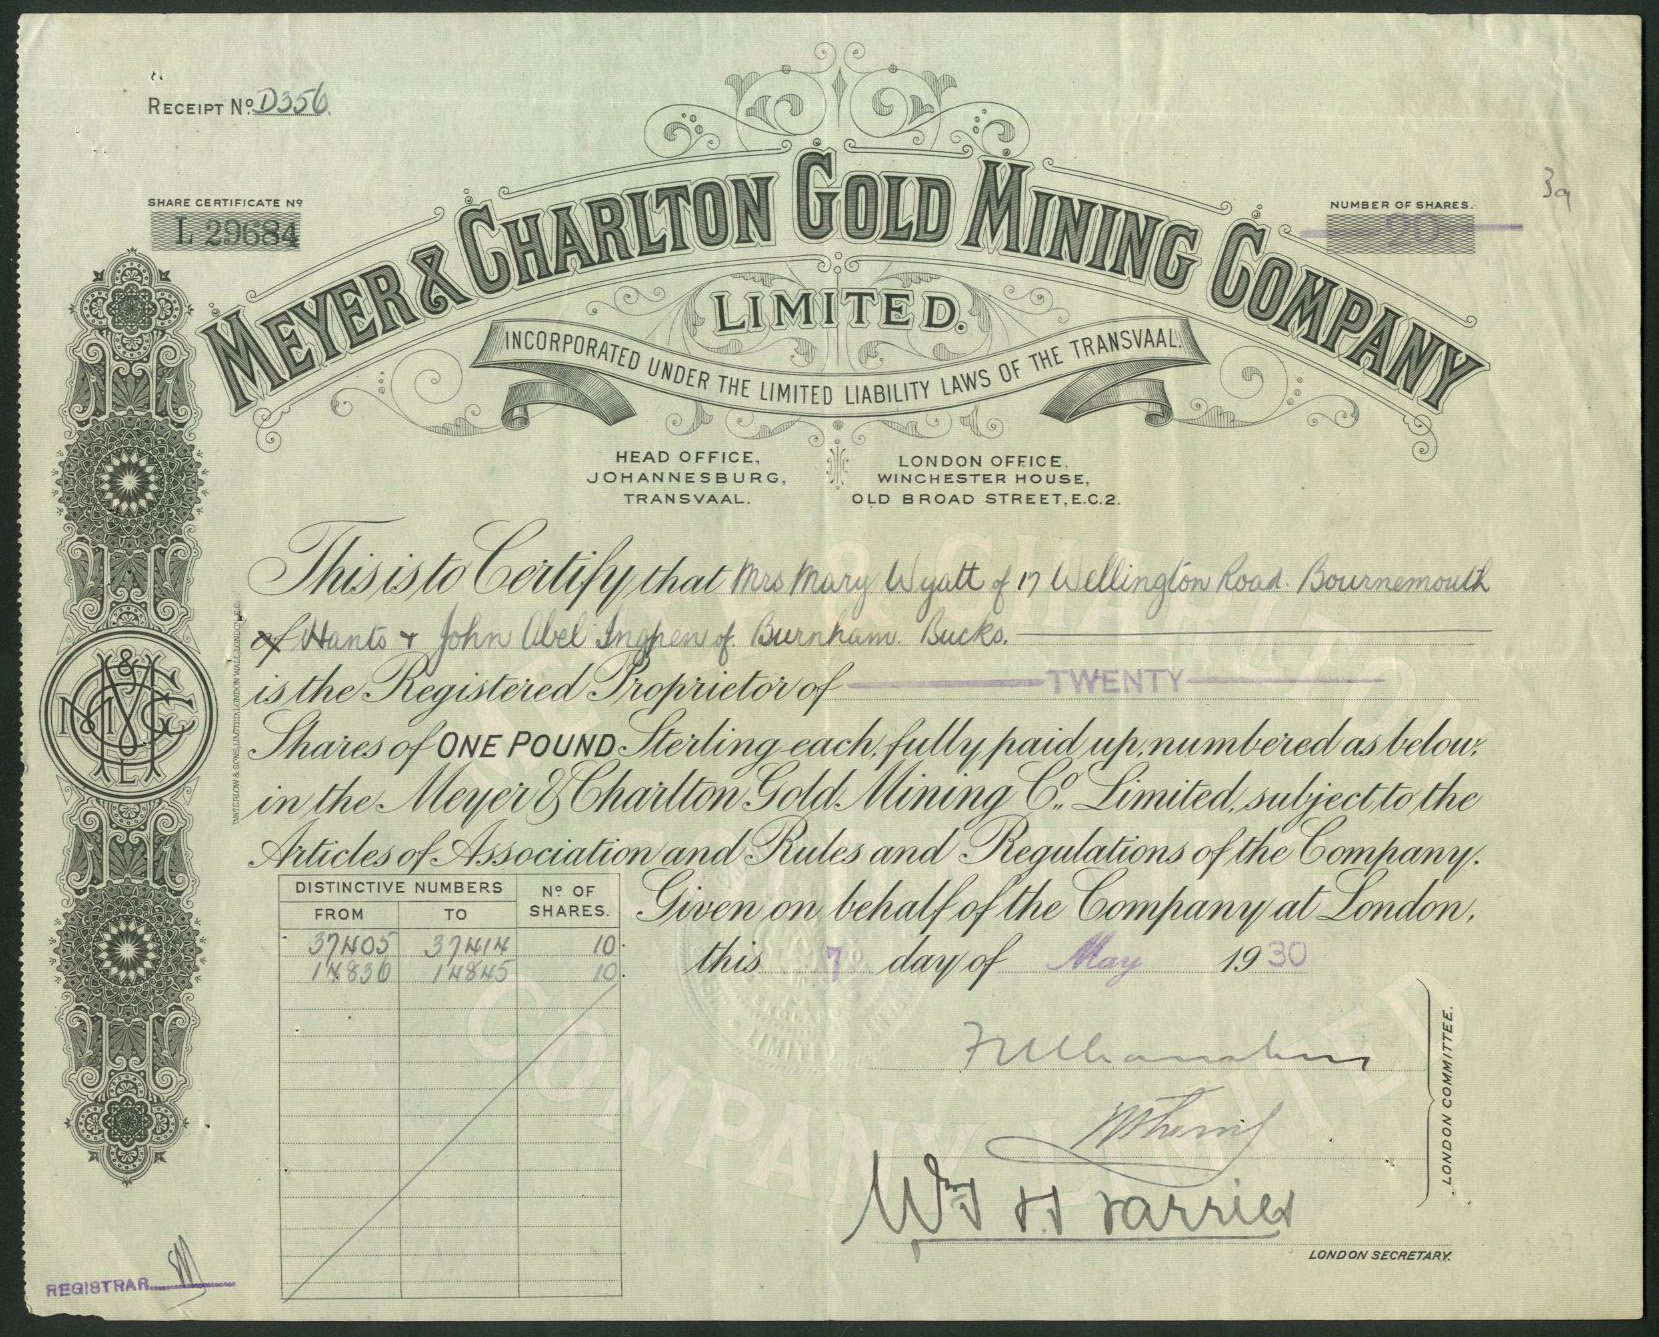 RECEIPT Nº D356
SHARE CERTIFICATE Nº
L 29684
NUMBER OF SHARES.
20
MEYER & CHARLTON GOLD MINING COMPANY
LIMITED.
INCORPORATED UNDER THE LIMITED LIABILITY LAWS OF THE TRANSVAAL.
HEAD OFFICE,
JOHANNESBURG,
TRANSVAAL.
LONDON OFFICE,
WINCHESTER HOUSE,
OLD BROAD STREET, E.C.2.
This is to Certify that Mrs Mary Wyatt of 17 Wellington Road. Bournemouth
of Hants & John Abel Ingpen of Burnham. Bucks.
is the Registered Proprietor of TWENTY
Shares of ONE POUND Sterling each, fully paid up, numbered as below,
in the Meyer & Charlton Gold Mining Co., Limited, subject to the
Articles of Association and Rules and Regulations of the Company.
Given on behalf of the Company at London,
this 7 day of May 1930
DISTINCTIVE NUMBERS Nº OF SHARES.
FROM TO
37405 37414 10
14836 14845 10
LONDON COMMITTEE.
LONDON SECRETARY.
REGISTRAR
WATERLOW & SONS LIMITED, LONDON WALL, LONDON, E.C.
MEYER & CHARLTON
GOLD MINING
COMPANY LIMITED